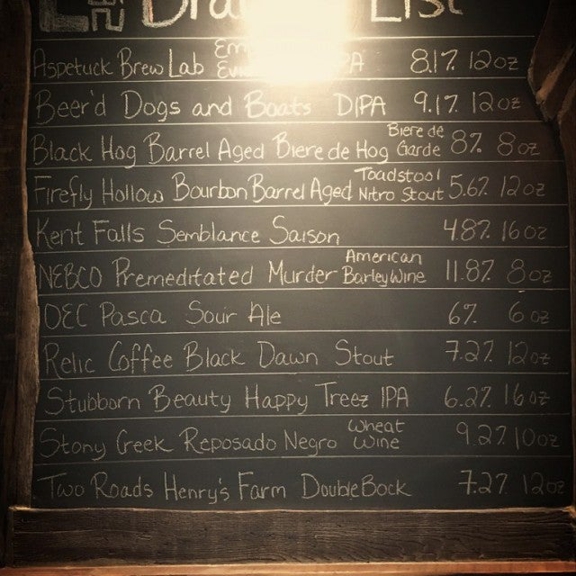 List
Aspetuck Brew Lab 8.1% 12oz
Beer'd Dogs and Boats DIPA 9.1% 12oz
Black Hog Barrel Aged Biere de Hog Biere de Garde 8% 8oz
Firefly Hollow Bourbon Barrel Aged Toadstool Nitro Stout 5.6% 12oz
Kent Falls Semblance Saison 4.8% 16oz
NEBCO Premeditated Murder American BarleyWine 11.8% 8oz
OEC Pasca Sour Ale 6% 6oz
Relic Coffee Black Dawn Stout 7.2% 12oz
Stubborn Beauty Happy Treez IPA 6.2% 16oz
Stony Creek Reposado Negro Wheat Wine 9.2% 10oz
Two Roads Henry's Farm DoubleBock 7.2% 12oz